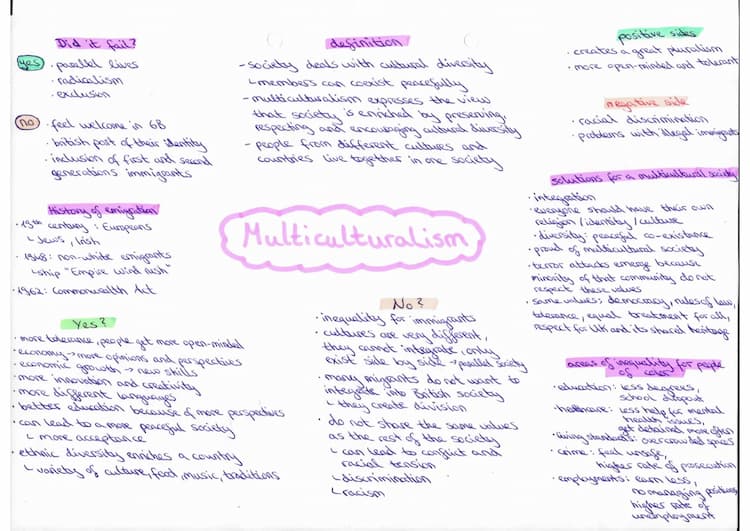 Did it fail?
yes
· parallel lives
· radicalism
· exclusion
no
· feel welcome in GB
· british part of their identity
· inclusion of first and second
generations immigrants
History of emigration
· 19th century: Europeans
↳ Jews, Irish
· 1948: non-white emigrants
↳ ship "Empire Windrush"
· 1962: Commonwealth Act
definition
- society deals with cultural diversity
↳ members can coexist peacefully
- multiculturalism expresses the view
that society is enriched by preserving,
respecting and encouraging cultural diversity
- people from different cultures and
countries live together in one society
Multiculturalism
positive sides
· creates a great pluralism
· more open-minded and tolerant
negative side
· racial discrimination
· problems with illegal immigrants
solutions for a multicultural society
· integration
· everyone should have their own
religion/identity/culture
· diversity: peaceful co-existance
· proud of multicultural society
· terror attacks emerge because
minority of that community do not
respect these values
· same values: democracy, rules of law,
tolerance, equal treatment for all,
respect for UK and its shared heritage
Yes?
· more tolerance, people get more open-minded
· economy → more opinions and perspectives
· economic growth → new skills
· more innovation and creativity
· more different languages
· better education because of more perspectives
· can lead to a more peaceful society
↳ more acceptance
· ethnic diversity enriches a country
↳ variety of culture, food, music, traditions
No?
· inequality for immigrants
· cultures are very different,
they cannot integrate, only
exist side by side → parallel society
· many migrants do not want to
integrate into British society
↳ they create division
· do not share the same values
as the rest of the society
↳ can lead to conflict and
racial tension
↳ discrimination
↳ racism
areas of inequality for people
of color
· education: less degrees,
school dropout
· healthcare: less help for mental
health issues,
get detained more often
· living standards: overcrowded spaces
· crime: feel unsafe,
higher rate of prosecution
· employments: earn less,
no managing positions,
higher rate of
unemployment